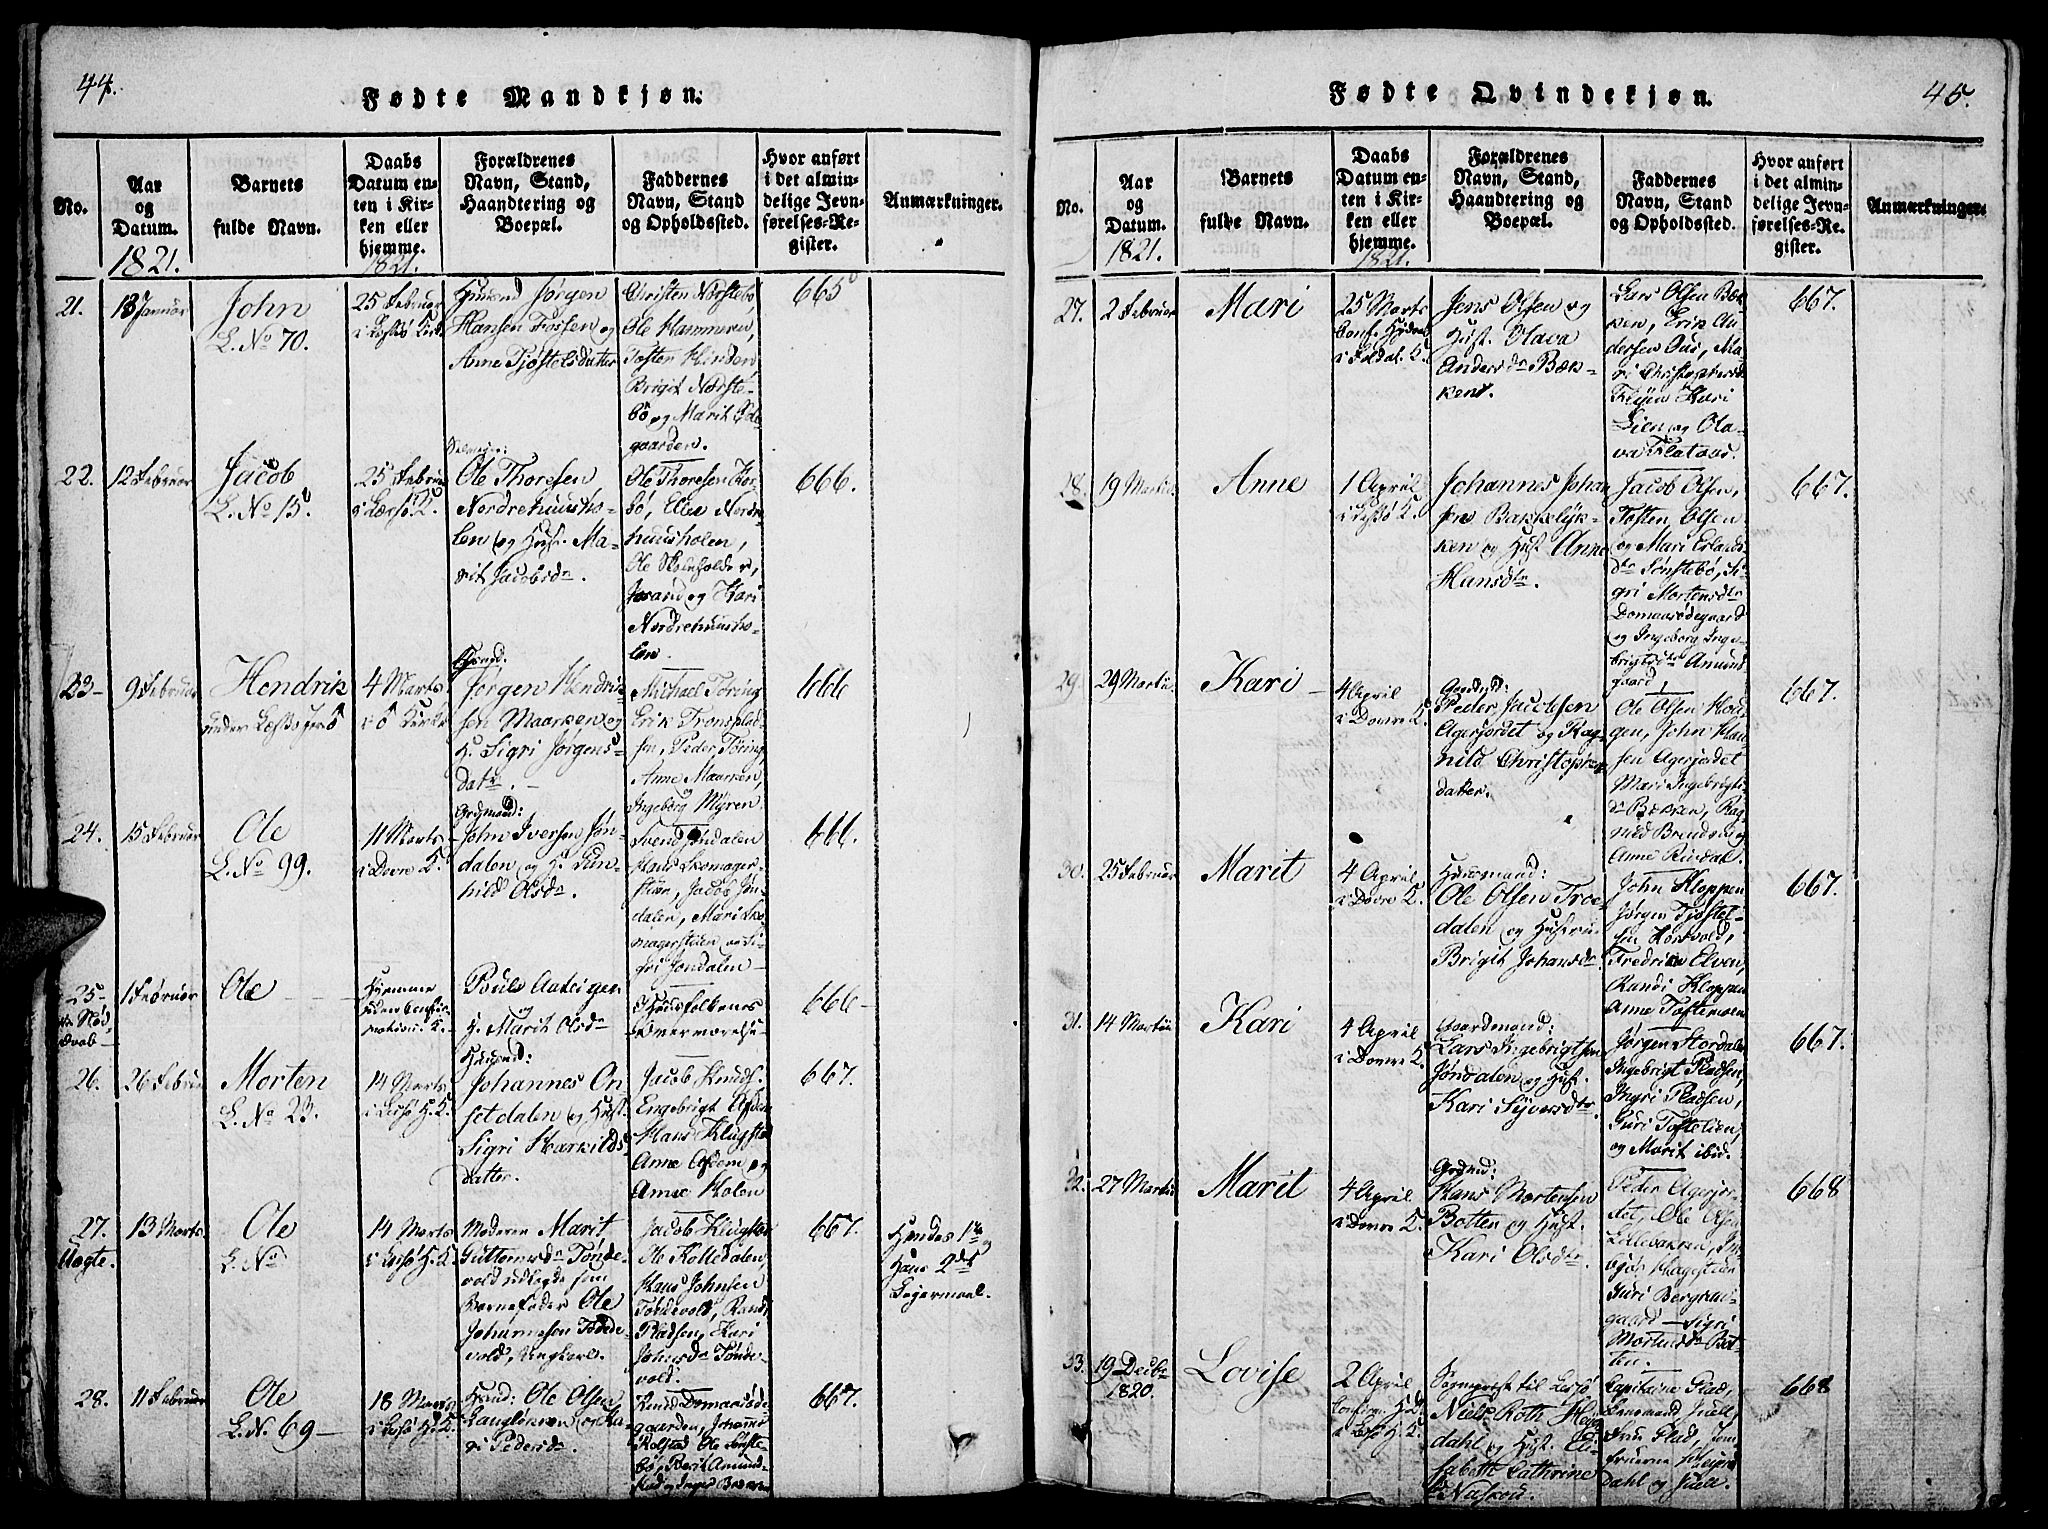 44.
Fødte Mandkjøn.
No.
Aar
og
Datum.
1821.
Barnets
fulde Navn.
Daabs
Datum en-
ten i Kir-
ken eller
hjemme.
1821.
Forældrenes
Navn, Stand,
Haandtering og
Boepæl.
Faddernes
Navn, Stand
og Opholdssted.
Hvor anført
i det almin-
delige Jevn-
førelses-Re-
gister.
Anmærkninger.
21.
18 Januar
John
L. No 70.
25 Februar
i Lessø Kirk
Huusmd Jørgen
Hansen Fossen og
Anne Tjøstelsdatter
Christen Norstebø,
Ole Hammeren,
Tosten Kinden
Brigit Norste-
bø og Marit Øde-
gaarden.
665
22.
12 Februar
Jacob
L. No 15.
25 Februar
i Lessø K.
Ole Thoresen
Nordrehuusho-
len og Hust. Ma-
rit Jacobsdr.
Ole Thoresen
bø, Elen Nordre-
huusholen,
Ole Skoleholder,
og Kari
Nordrehuusho-
len.
666.
23
9 Februar
Hendrik
under Lessø
4 Marts
i Kirke
Huusmd.
Jørgen Hendrik
sen Maarken og
H. Sigri Jørgens-
datr.
Michael Toring
Erik Tronsplad-
sen, Peder Toring,
Anne Maarken,
og
Ingeborg Myren.
666
24.
15 Februar
Ole
L. No 99.
11 Marts
i Dovre K.
Grdmand:
John Iversen Jøn-
dalen og H. Gun-
hild Olsdr.
Svend Jøndalen
Hans Skomager-
stuen, Jacob Jøn-
dalen, Mari Sko-
magerstuen og Si-
gri Jondalen
666.
25
Ole
H. Marit Olsdr
Huusfolkenes
Nærværelse
666
26.
26 Februar
Morten
L. No 23.
14 Marts
i Lessø H. K.
Huusmd:
Johannes On
setdalen og Hust.
Sigri Harkilds-
datter.
Jacob Knuds.
Engebrigt Asdem
Hans Klugstad
Anne Asdem og
Anne Holen
667.
27.
Uægte.
13 Marts
Ole
L. No
14 Marts
i Lessø H. K.
Moderen Marit
Guttormsdr Tønde-
vold udlagde som
Barnefader Ole
Johannesen Tønde-
vold, Ungkarl.
Jacob Klugstad
Ole Kolledalen,
Hans Johnsen
Tøndevold, Randi
Pladsen, Kari
Johnsdr Tønde-
vold.
667.
Hendes 1te
og
Hans 2det
Leiermaal.
28.
11 Februar
Ole
L. No. 69
18 Marts
i Lessø H. K.
Huusmd: Ole Olsen
Langløkken og Ka-
ri Pedersdr
Knud Domaasøde-
gaarden, Johannes
Kolstad Ole Sønste-
bø, Berit Amund-
667.
45.
Fødte Qvindekjøn.
No.
Aar
og
Datum.
1821.
Barnets
fulde Navn.
Daabs
Datum en-
ten i Kir-
ken eller
hjemme.
1821.
Forældrenes
Navn, Stand,
Haandtering og
Boepæl.
Faddernes
Navn, Stand
og Opholdssted.
Hvor anført
i det almin-
delige Jevn-
førelses-Re-
gister.
Anmærkninger.
27.
2 Februar
Mari
25 Marts
Conf. Hjdaab
i Foldal. K.
Jens Olsen og
Hust. Olava
Andersdr Bæk-
ken.
Lars Olsen Bæk-
ken, Erik An-
dersen Øus, Ma-
ri Christophersdr
Kari
Lien og Ola-
va Flatøus.
667.
28.
19 Martii
Anne
1 April
i Lessø K.
Johannes Johan
sen Bakkeløk-
ken og Hust Anne
Hansdtr.
Jacob Olsen,
Tosten Olsen
og Mari Erlands-
dtr Sønstebø, Si-
gri Mortensdtr
Domaasødegaard
og Ingeborg Inge-
brigtsdtr Amunds-
gaard.
667.
29.
29 Martii
Kari
4 April
i Dovre K.
Gaardmd:
Peder Jacobsen
Agerjordet og Rag-
nild Christophers-
datter.
Ole Olsen Hou-
gen, John Han-
sen Agerjordet
Mari Ingebrigts-
dr Bækken, Rag-
nild Brenden og
Anne Rusdal.
667.
30.
25 Februar
Marit
4 April
i Dovre K.
Huusmand:
Ole Olsen Troe-
dalen og Hustru
Brigit Johansdr.
John Kloppen
Jørgen Tjøstel-
sen Horvold,
Fredrik Elven,
Randi Kloppen
Anne Toftemoen
667.
31.
14 Martii
Kari
4 April
i Dovre K.
Gaardmand:
Lars Ingebrigtsen
Jøndalen og Hust.
Kari Syversdtr.
Jørgen Stordalen
Ingebrigt Pladsen,
Ingri Pladsen,
Guri Toftelien,
og Marit ibid.
667.
32.
27 Martii
Marit
4 April
i Dovre K.
Grdmd:
Hans Mortensen
Botten og Hust.
Kari Olsdtr.
Peder Agerjor-
det, Ole Olsen
Lillebakken, In-
Guri Berghus-
gaard – Sigri
Mortensdr Bot-
ten.
668
33.
19 Decbr
1820.
Lovise
2 April
Confirm. H.D.
i Lessø H K.
Sognepræst til Lessø
Niels Roth Hey-
dahl og Hust. Eli-
sabeth Cathrine
Naskou.
Capitaine Plad,
Lensmand Juell,
Frue Plad, Jom
fruerne Hey-
dahl og Juell.
668